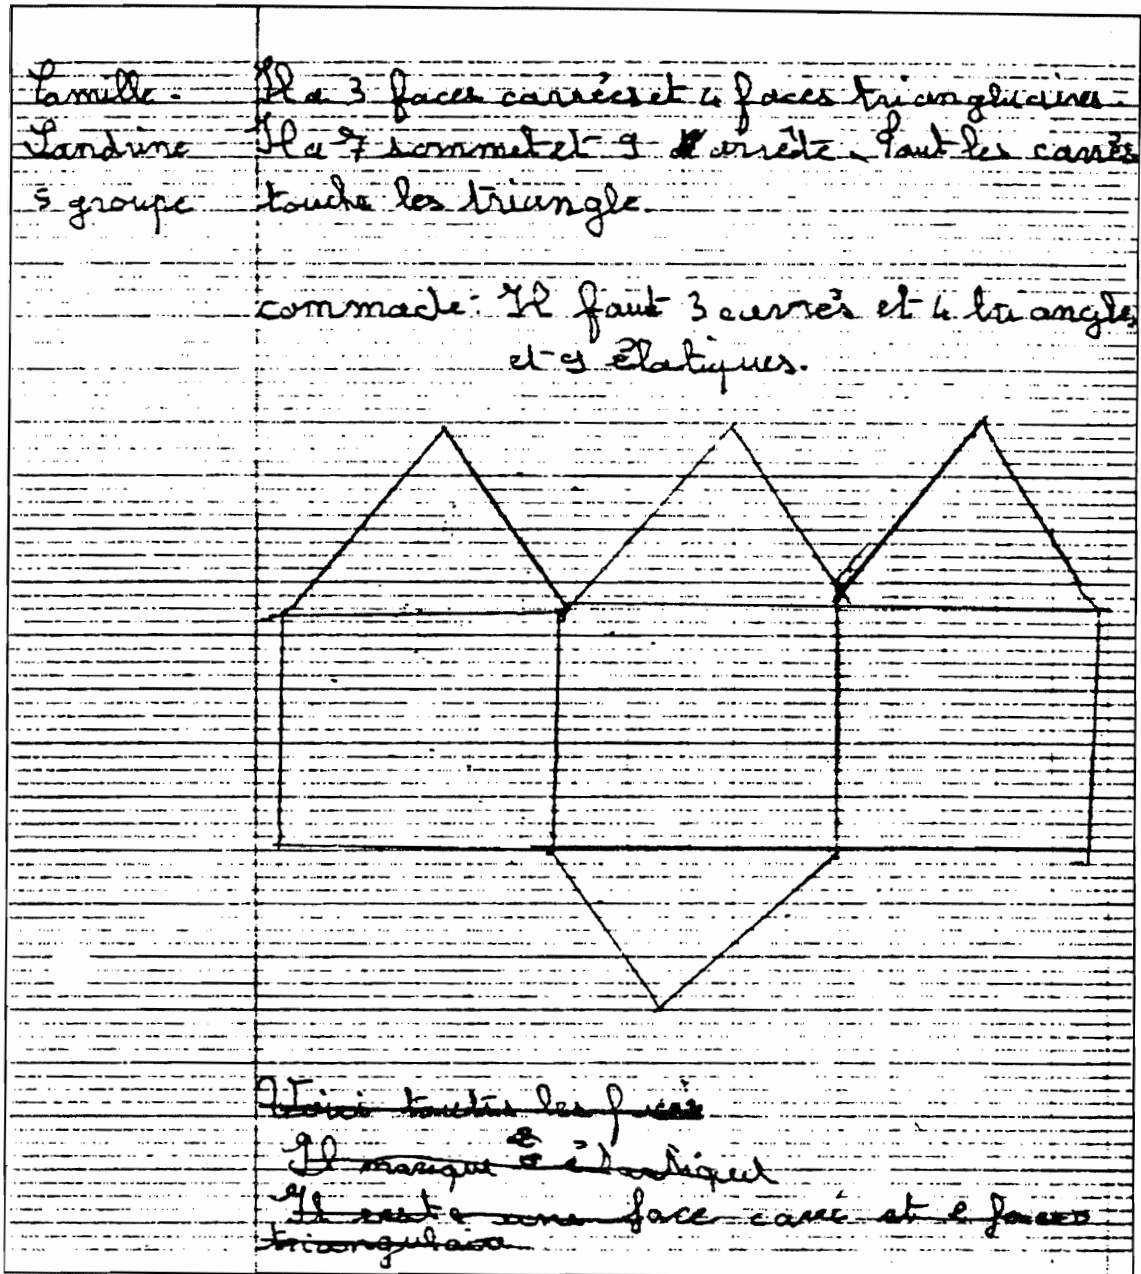 Camille.
Sandrine
5 groupe
Il a 3 faces carrées et 4 faces triangluaires.
Il a 7 sommet et 9 arrête. Tout les carrés
touche les triangle.
commade: Il faut 3 carrés et 4 triangles
et 9 élatiques.
Voici toutes les faces
Il manque élastiques
Il reste une face carré et 2 faces
triangulaire